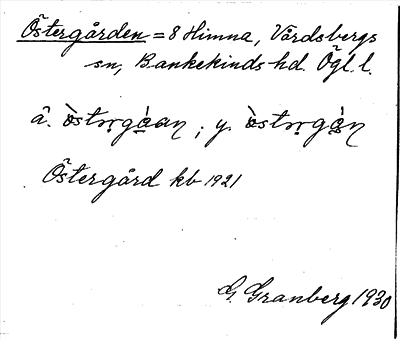 Östergården = 8 Himna, Vårdsbergs
sn, Bankekinds hd. Ögl. l.
ä. ; y.
Östergård kb 1921
G. Granberg 1930